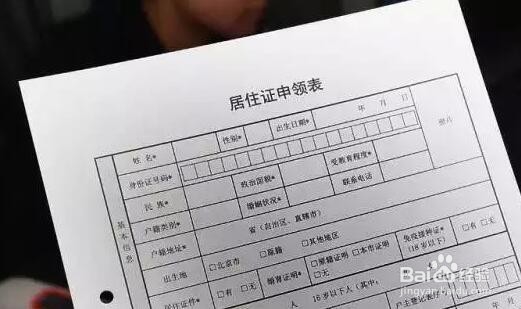 居住证申领表
姓 名* 性别* 出生日期* 年 月 日 照片
身份证号码*
民 族* 政治面貌* 受教育程度*
户籍类别* 婚姻状况* 联系电话*
户籍地址* 省（自治区、直辖市）
出生地 □北京市 □原籍 □其他地区
居住证件* □有 □无 婚育证明* □原籍证明 □本市证明 □无 免疫接种证*（18岁以下） □有 □无
人 16岁以下人（其中：
户主登记表
年 月
基本信息
Baidu经验
jingyan.baidu.com